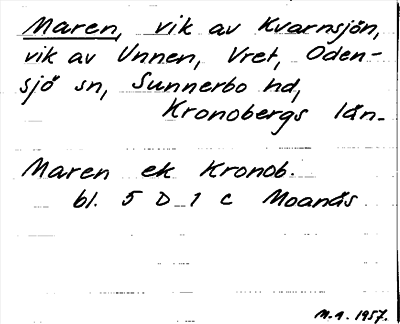 Maren, vik av Kvarnsjön,
vik av Unnen, Vret, Oden-
sjö sn, Sunnerbo hd,
Kronobergs län.
Maren ek Kronob.
bl. 5 D 1 c Moanäs
M.1. 1957.